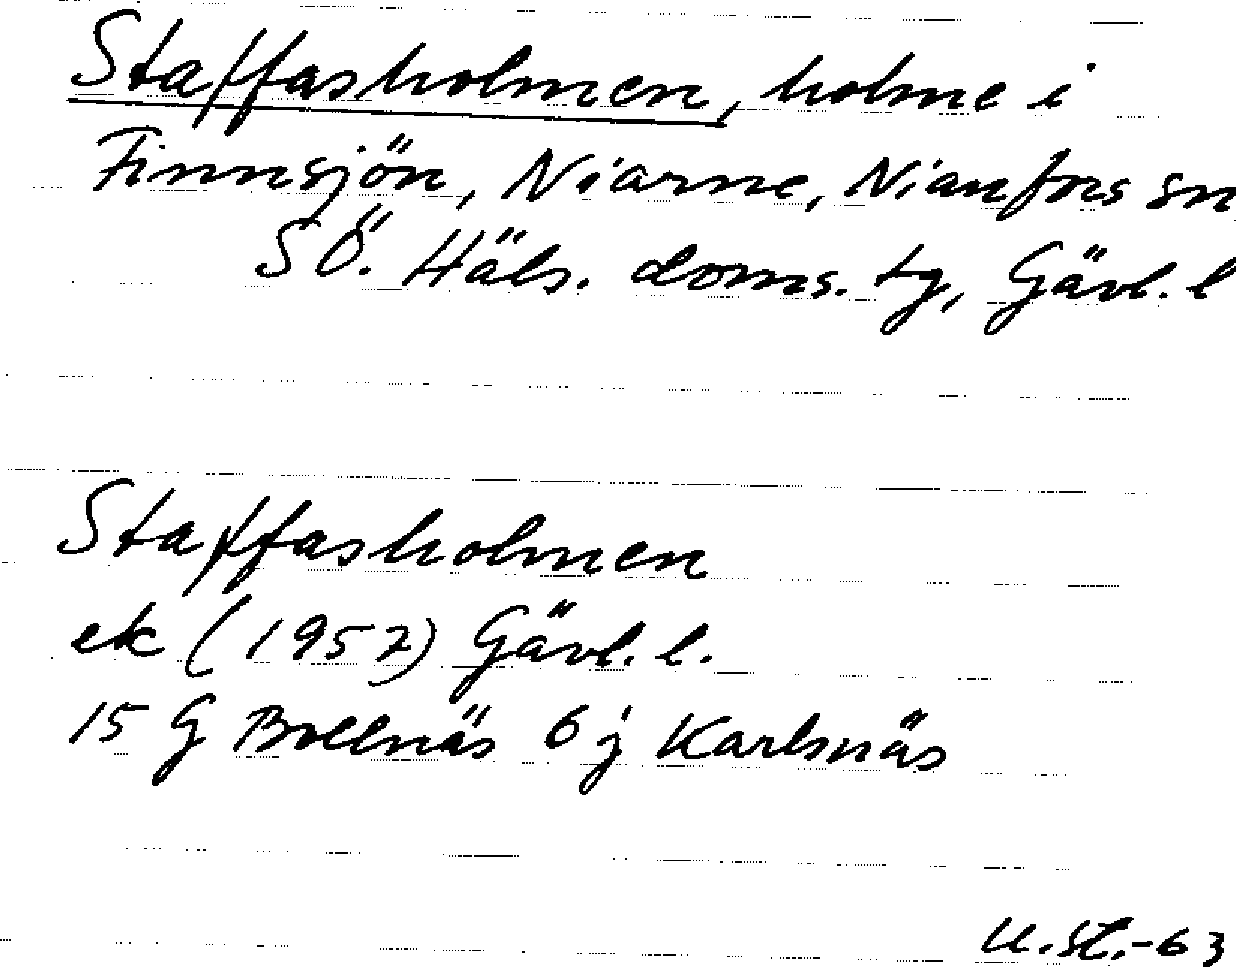 Staffasholmen, holme i
Finnsjön, Niarne, Nianfors sn
SÖ. Häls. doms. tg, Gävl. l
Staffasholmen
ek (1957) Gävl. l.
15 G Bollnäs 6 j Karlsnäs
U. St. -63